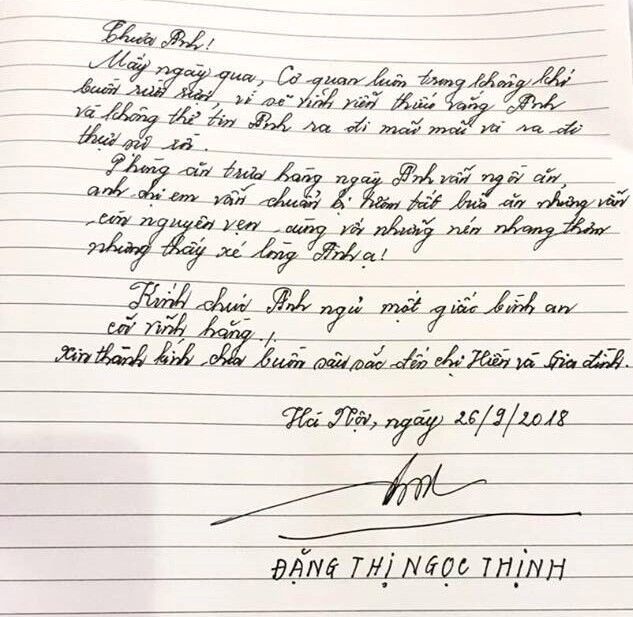 Thưa Anh!
Mấy ngày qua, Cơ quan luôn trong không khí
buồn rười rượi, vì sẽ vĩnh viễn thiếu vắng Anh
và không thể tin Anh ra đi mãi mãi và ra đi
thực sự rồi.
Phòng ăn trưa hàng ngày Anh vẫn ngồi ăn,
anh chị em vẫn chuẩn bị tươm tất bữa ăn nhưng vẫn
còn nguyên vẹn cùng với những nén nhang thơm
nhưng thấy xé lòng Anh ạ!
Kính chúc Anh ngủ một giấc bình an
cõi vĩnh hằng!
Xin thành kính chia buồn sâu sắc đến chị Hiền và Gia đình.
Hà Nội, ngày 26/9/2018
ĐẶNG THỊ NGỌC THỊNH